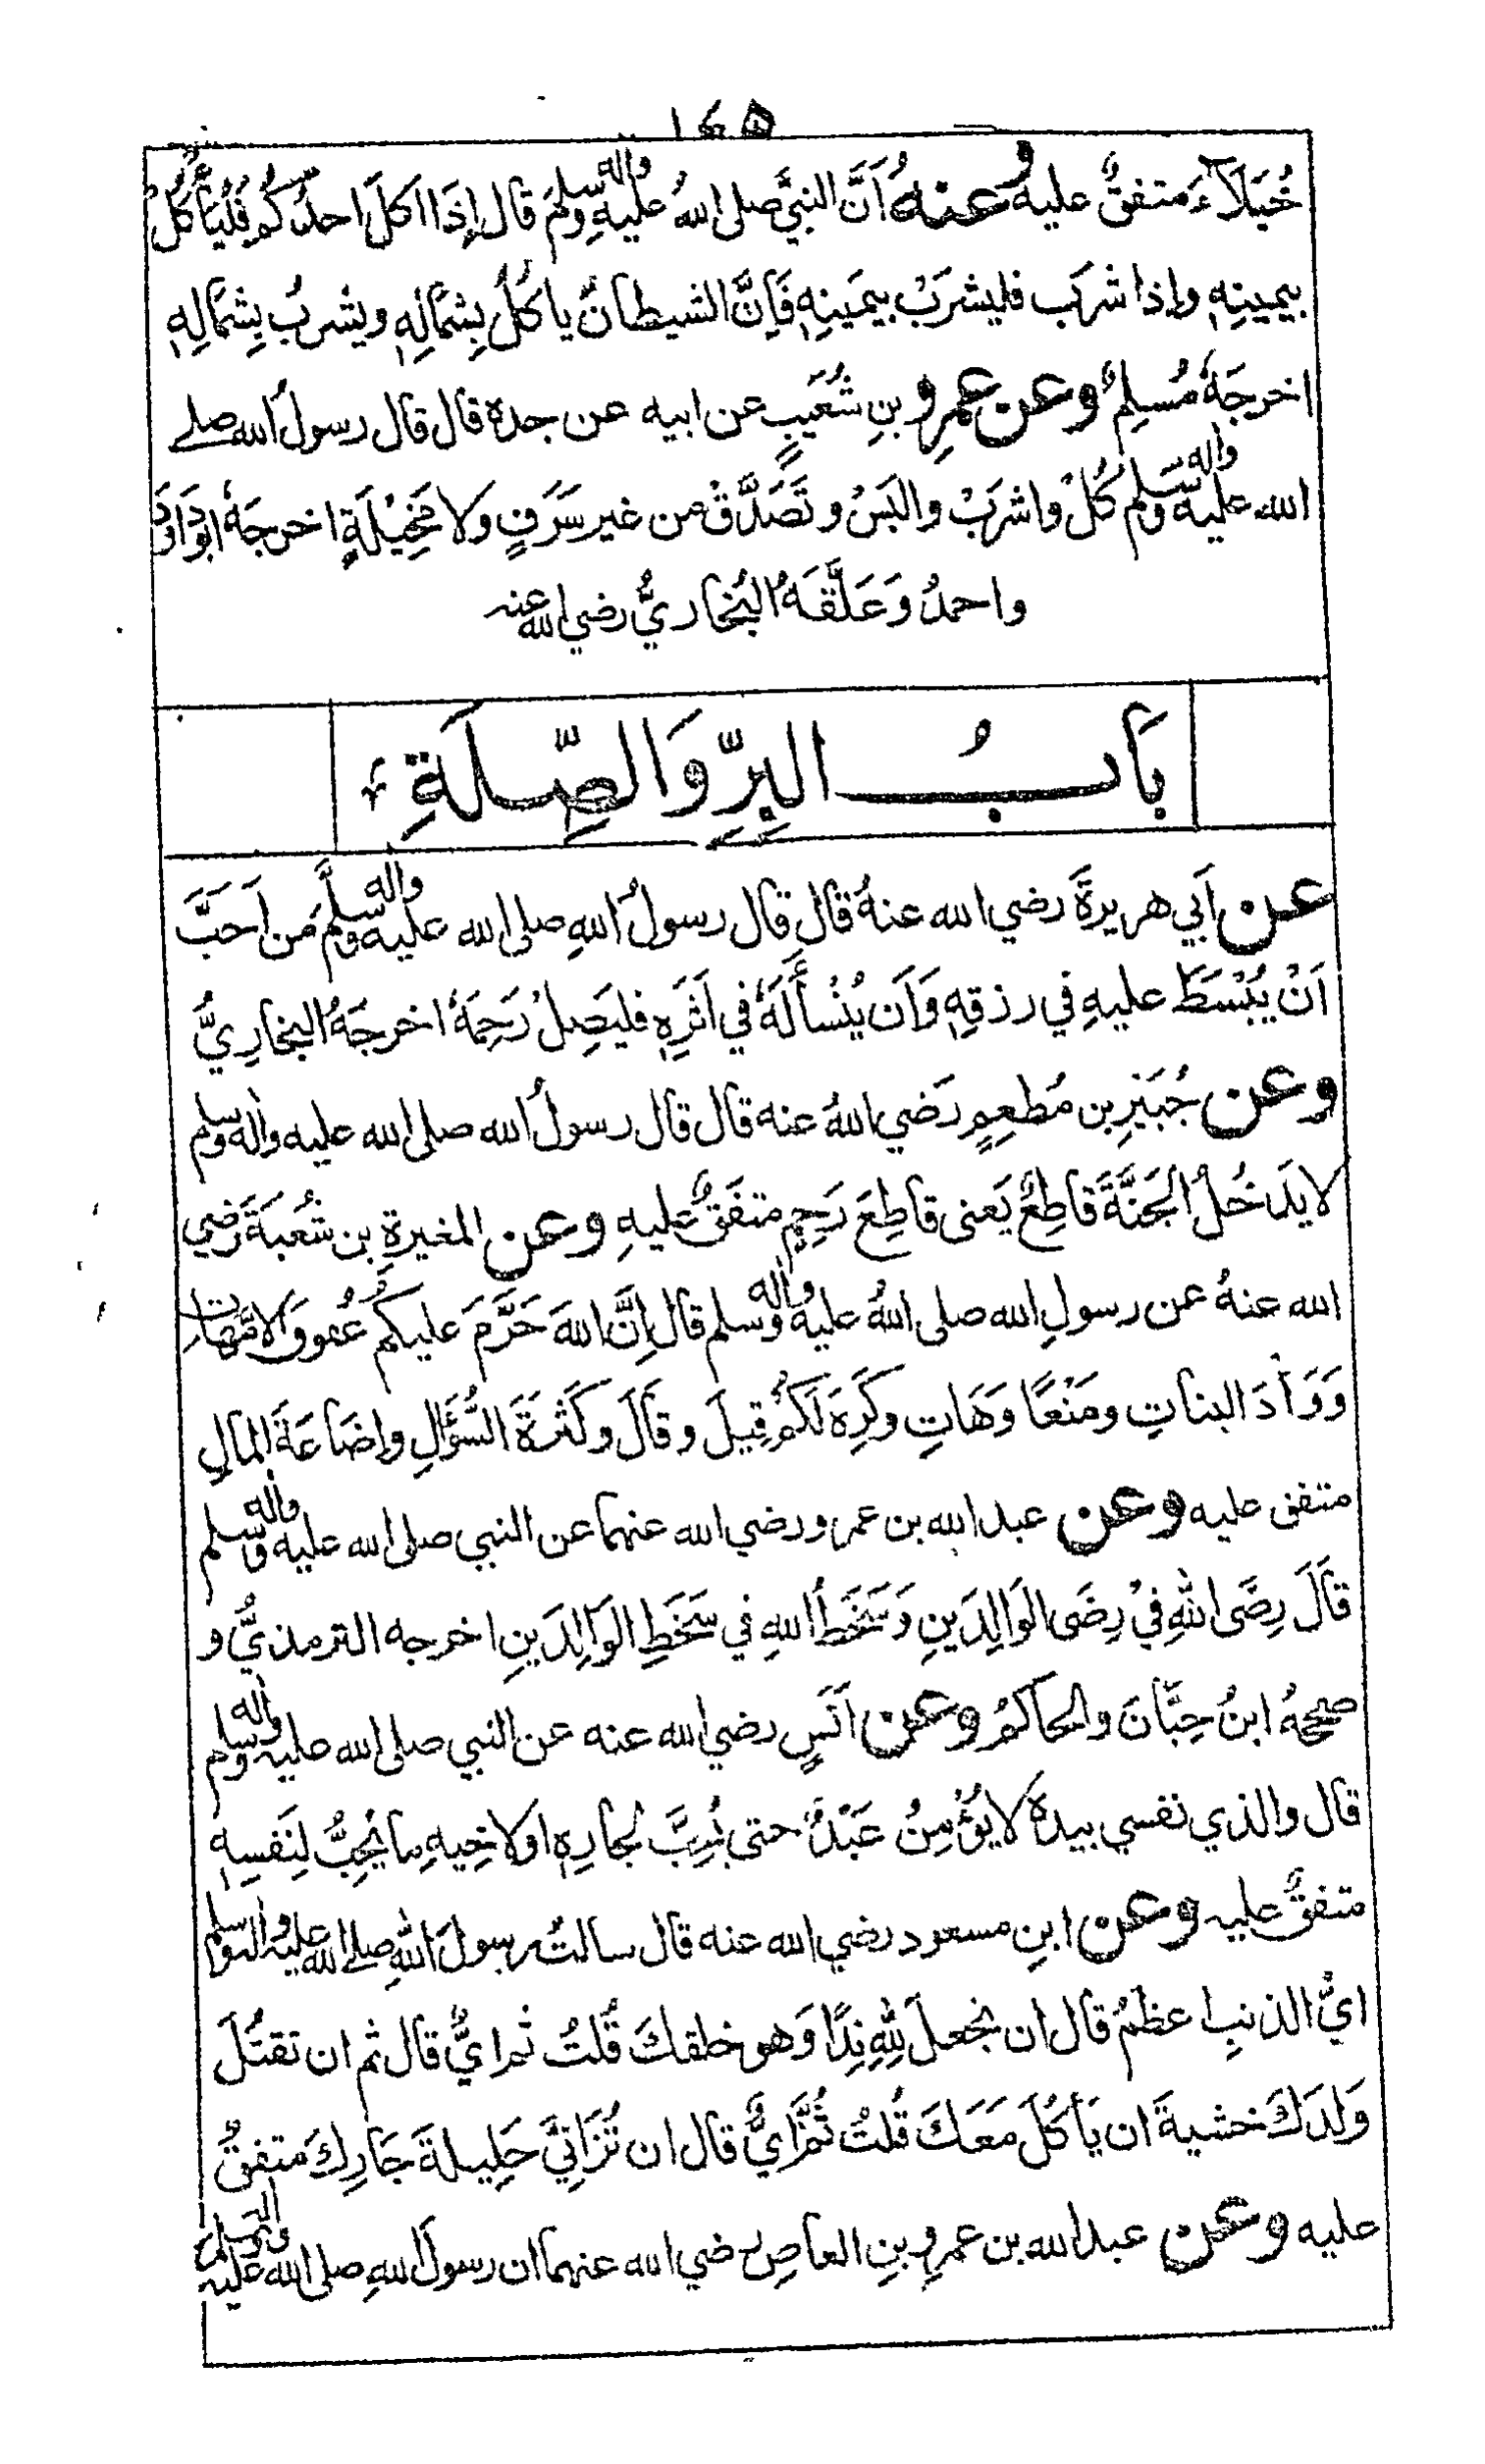 ١٤٥
خُيَلَآءَ متفقٌ عليه وعنهُ اَنَّ النبيَّ صلى اللهُ عليهِ واٰله وسلمَ قال اِذَا اكلَ احدُكُم فَلْيَأْكُلْ
بيمينِهٖ واِذا شرَبَ فليشرَبْ بيمَينِهٖ فَاِنَّ الشيطانَ ياكُلُ بِشِمَالِهٖ ويشربُ بِشِمَالِهٖ
اخرجَهٗ مُسلِمٌ وعن عمرِو بنِ شُعَيبٍ عن ابيه عن جدهٖ قال قال رسولُ الله صلے
الله عليه واٰله وسلم كُلْ واشرَبْ والبَسْ وتَصَدَّقْ من غير سَرَفٍ ولا مَخِيْلَةٍ اخرجَهٗ ابوداوَد
واحمدُ وَعَلَّقَهُ البُخاريُّ رضي الله عنه
بَابُ البِرِّ وَالصِّلَةِ
عن اَبي هريرةَ رضي الله عنهُ قال قال رسولُ اللهِ صلى الله عليه واٰله وسلَّم مَن اَحَبَّ
اَنْ يُبْسَطَ عليهِ في رزقِهٖ وَاَن يُنْسأَلَهٗ في اَثَرِهٖ فليَصِلْ رَحِمَهٗ اخرجَهُ البخارِيُّ
وعن جُبَيْرِ بن مُطعِمٍ رَضي اللهُ عنه قال قال رسولُ الله صلى الله عليه واٰله وسلم
لا يدَخُلُ الجَنَّةَ قاطِعٌ يَعنى قاطِعَ رَحِمٍ متفَقٌ عليهِ وعن المغيرةِ بن شُعبَةَ رَضي
الله عنهُ عن رسولِ الله صلى اللهُ عليه واٰله وسلم قال اِنَّ اللهَ حَرَّمَ عليكُم عُقوقَ الامَّهاتِ
وَوَأدَ البناتِ ومَنْعًا وَهَاتِ وكَرِهَ لَكُمْ قِيلَ وقَالَ وكَثرَةَ السُّؤَالِ واِضَاعَةَ المَالِ
متفق عليه وعن عبد الله بن عمرو رضي الله عنهما عن النبي صلى الله عليه واٰله وسلم
قَالَ رِضَى اللهِ فيْ رِضَى الوَالِدَينِ وَسَخَطُ اللهِ في سَخَطِ الوَالِدَينِ اخرجه الترمذيُّ و
صححهُ ابنُ حِبَّانَ والحاكمُ وعن اَنَسٍ رضي الله عنه عن النبي صلى الله عليه واٰله وسلم
قال والذي نفسي بيدهٖ لا يُؤْمِنُ عَبْدٌ حتى يُحِبَّ لجارِهٖ اولاخيهِ مايُحِبُّ لِنَفسِهٖ
متفقٌ عليه وعن ابنِ مسعود رضي الله عنه قال سالتُ رسولَ اللهِ صلے الله عليه واٰله وسلم
ايُّ الذنبِ اعظمُ قال ان تجعلَ لِلهِ نِدًا وَهو خلقكَ قُلتُ ثم ايٌّ قال ثم ان تقتُلَ
وَلدَكَ خشيةَ ان يَأكُلَ مَعَكَ قُلتُ ثُمَّ ايٌّ قال ان تُزَانِيَ حَلِيلةَ جَارِكَ متفقٌ
عليه وعن عبد الله بن عمرِو بنِ العاصِ رضي الله عنهما ان رسولَ اللهِ صلى الله عليه واٰله وسلم